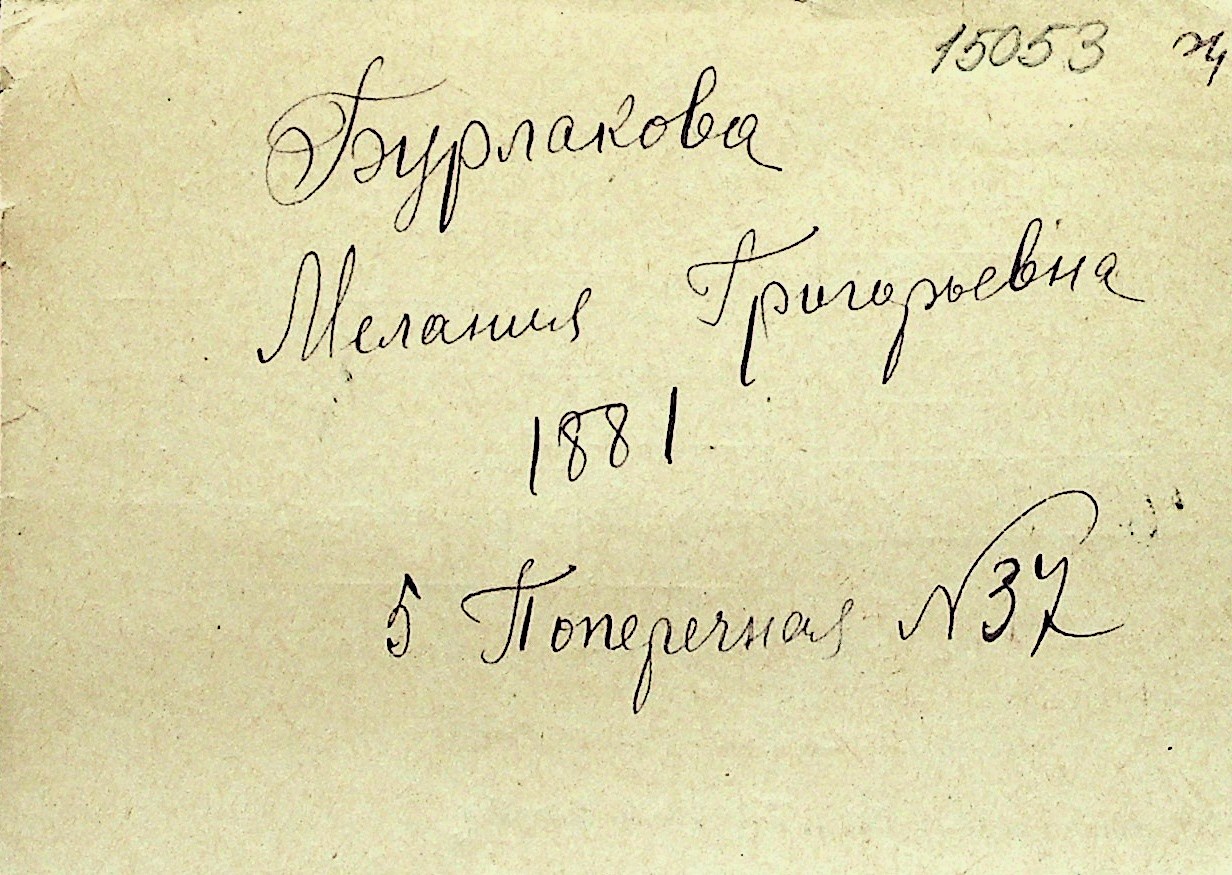 15053
Бурлакова
Мелания Григорьевна
1881
5 Поперечная №37